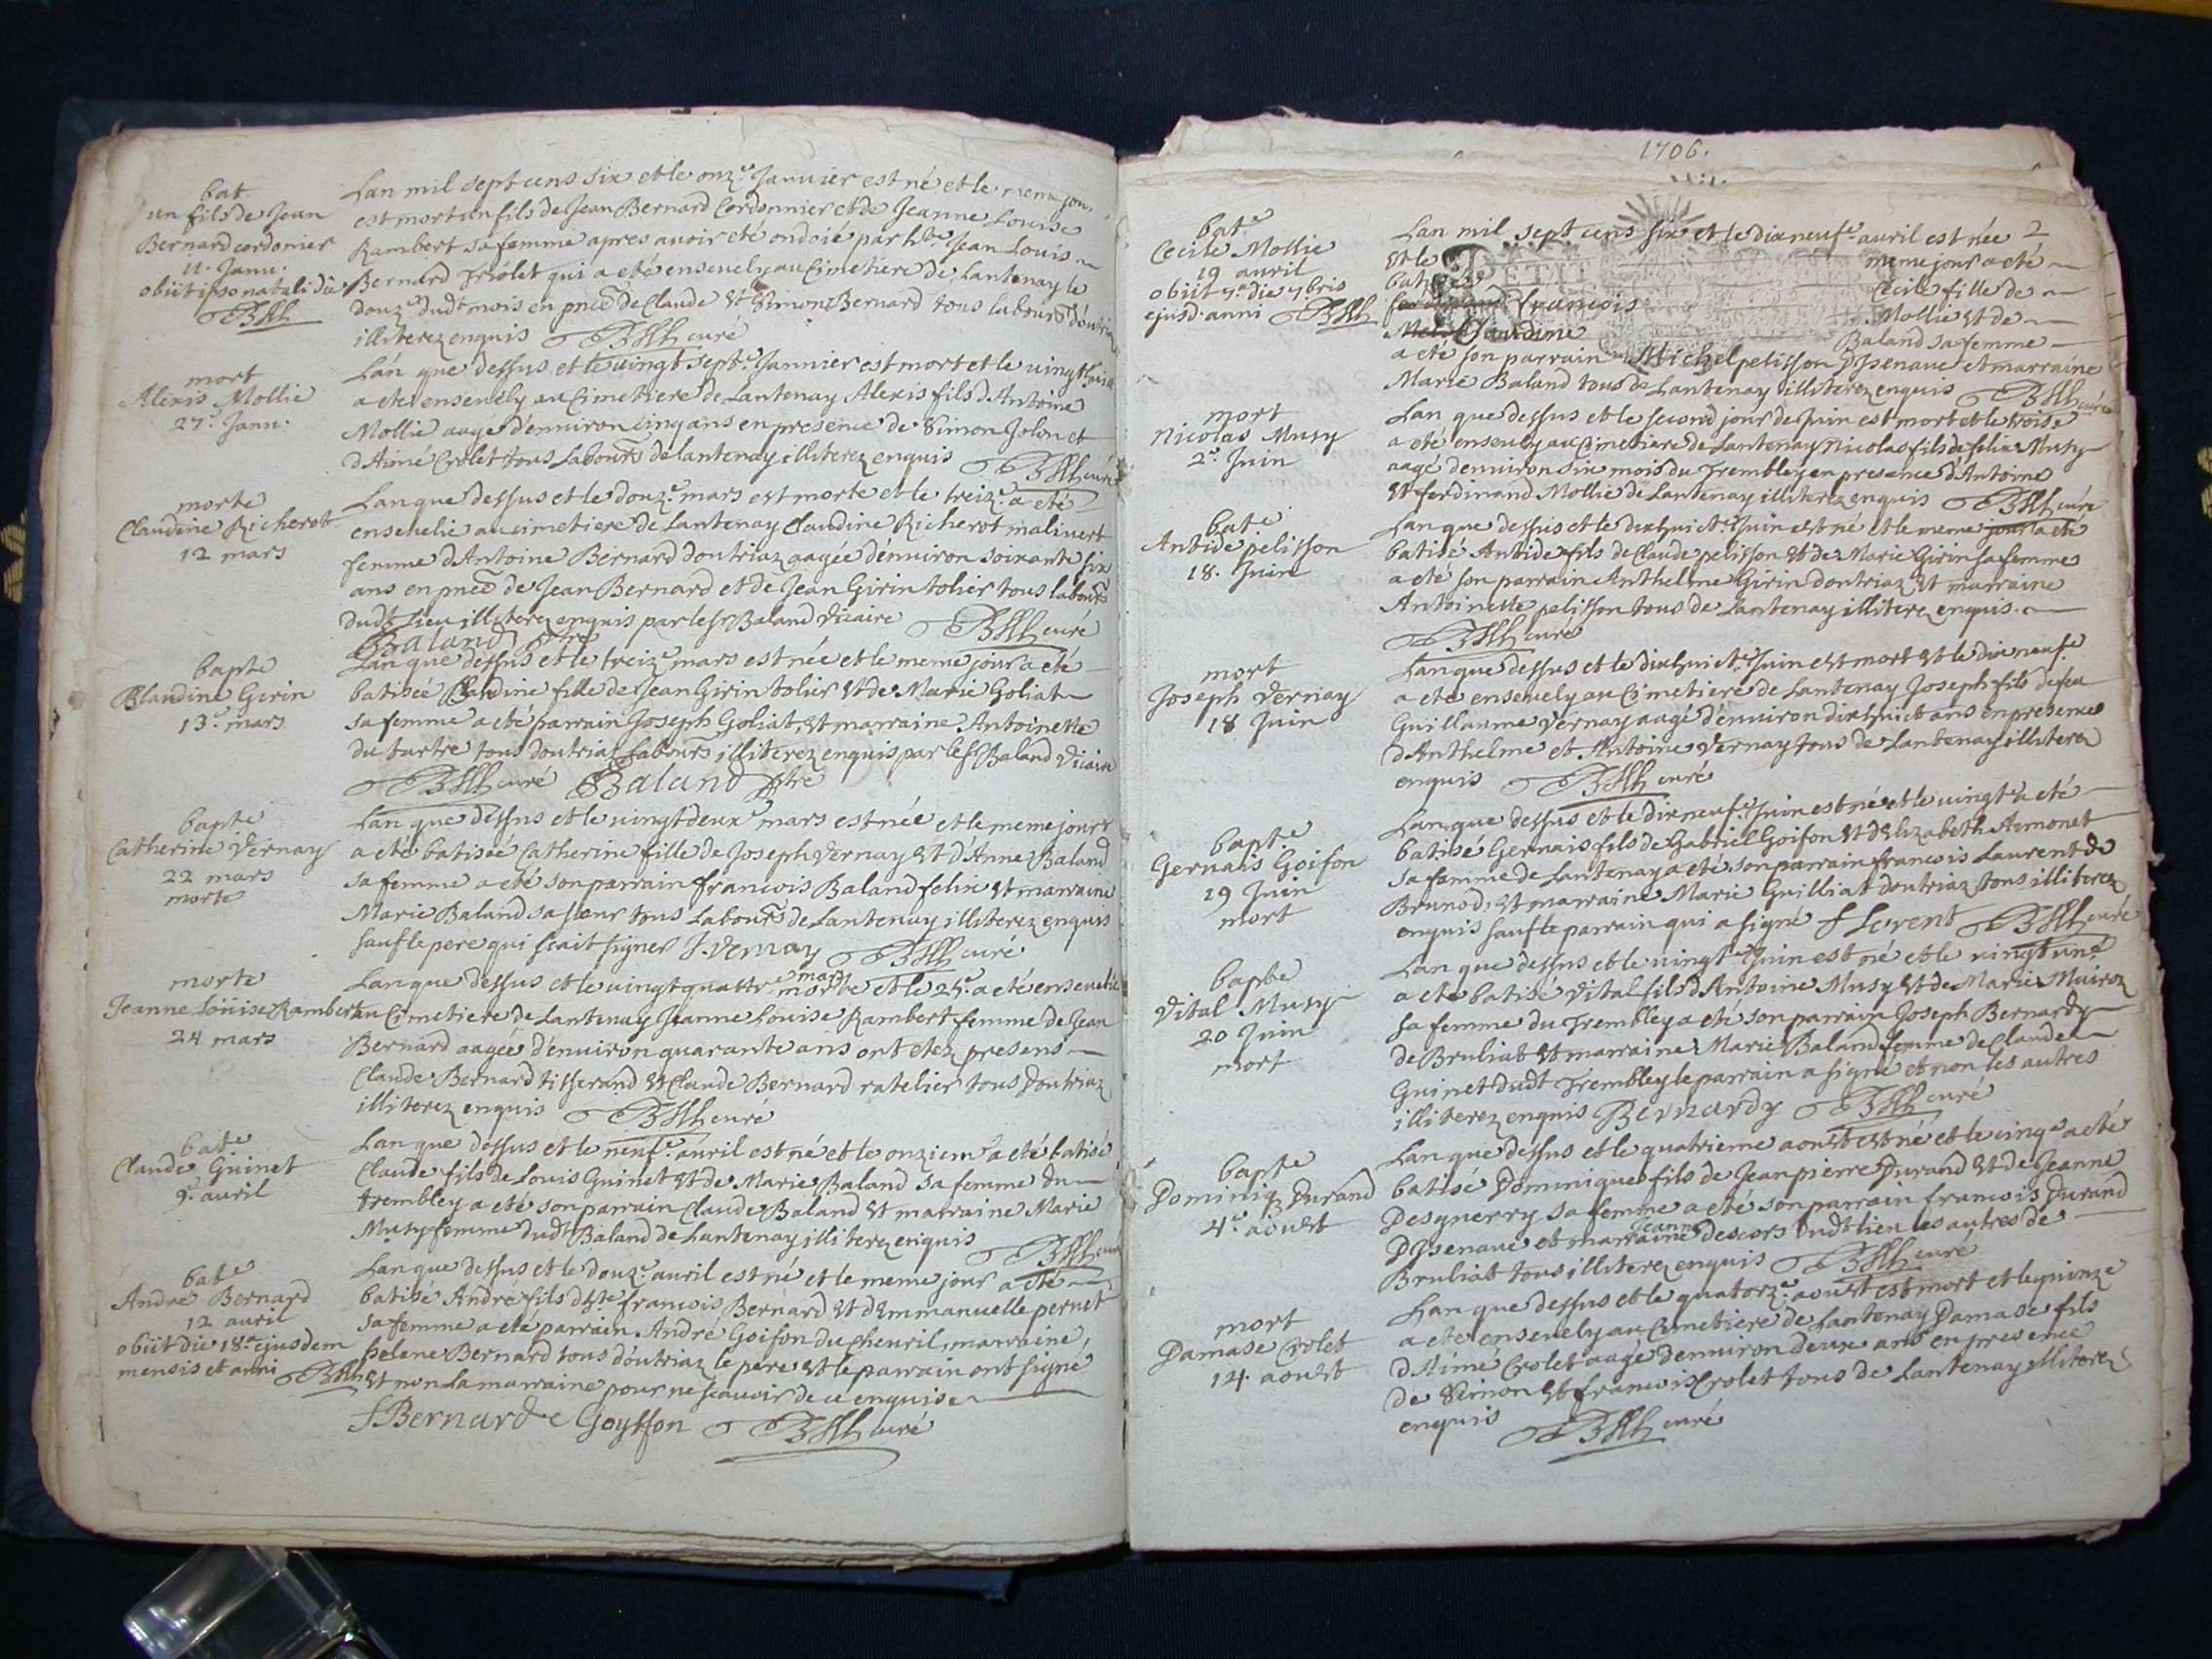 bat
un fils de Jean
Bernard cordonier
11. Janu.
obiit ipso natali die
Lan mil sept cens six et le onz.e Janvier est né et le meme jou
est mort un fils de Jean Bernard Cordonnier et de Jeanne Louise
Rambert sa femme apres avoir eté ondoié par h.te Jean Louis
Bernard Triolet qui a eté ensevely au Cimetiere de Lantenay le
douz.e dudt mois en pnce de Claude et Simon Bernard tous labours doutriaz
illiterez enquis curé
mort
Alexis Mollie
27.e Janv.
Lan que dessus et le vingt sept.e Janvier est mort et le vingthuit
a eté ensevely au Cimetiere de Lantenay Alexis fils dAntoine
Mollie aagé denviron cinq ans en presence de Simon Jolon et
dAimé Crolet tous Labours de lantenay illiterez enquis curé
morte
Claudine Richerot
12 mars
Lan que dessus et le douz.e mars est morte et le treiz.e a eté
ensevelie au cimetiere de Lantenay Claudine Richerot malivert
femme dAntoine Bernard doutriaz aagée denviron soixante six
ans en pnce de Jean Bernard et de Jean Girin tolier tous labours
dudt Lieu illiterez enquis par le Sr Baland vicaire curé
Baland ptre
bapte
Blandine Girin
13.e mars
Lan que dessus et le treiz.e mars est née et le meme jour a eté
batisée Claudine fille de Jean Girin tolier et de Marie Goliat
sa femme a eté parrain Joseph Goliat, et marraine Antoinette
du tartre tous doutriaz Labours illiterez enquis par le Sr Baland Vicaire
curé Baland ptre
bapte
Catherine Vernay
22 mars
morte
Lan que dessus et le vingtdeux.e mars est née et le meme jour
a eté batisée Catherine fille de Joseph Vernay et d'Anne Baland
sa femme a eté son parrain francois Baland felix et marraine
Marie Baland sa soeur tous Labours de Lantenay illiterez enquis
sauf le pere qui scait signer J. vernay curé
morte
Jeanne Loüise Rambert
24 mars
Lan que dessus et le vingt quattr.e mars morte et le 25.e a eté ensevelie
au Cimetiere de Lantenay Jeanne Louise Rambert femme de Jean
Bernard aagée d'environ quarante ans ont etez presens
Claude Bernard tisserand et Claude Bernard ratelier tous doutriaz
illiterez enquis curé
bate
Claude Guinet
9.e avril
Lan que dessus et le neuf.e avril est né et le onziem.e a eté batisé
Claude fils de Louis Guinet et de Marie Baland sa femme du
trembley a eté son parrain Claude Baland et marraine Marie
Musy femme dudt Baland de Lantenay illiterez enquis
curé
bate
André Bernard
12 avril
obiit die 18.a ejusdem
mensis et anni
Lan que dessus et le douz.e avril est né et le meme jour a eté
batisé André fils d h.te francois Bernard et dEmmanuelle pernet
sa femme a eté parrain André Goifon du chevril, marraine
helene Bernard tous doutriaz le pere et le parrain ont signé
et non la marraine pour ne scavoir de ce enquise
f Bernard Goyffon curé
1706.
2
bate
Cecile Mollie
19 avril
obiit 7.a die 7bris
ejusd. anni
Lan mil sept cens six et le dixneuf.e avril est née
et le meme jour a eté
batisée Cecile fille de
francois Mollie et de
Claudine Baland sa femme
a eté son parrain Michel pelisson DIsenave et marraine
Marie Baland tous de Lantenay illiterez enquis curé
mort
Nicolas Musy
2.e Juin
Lan que dessus et le second jour de Juin est mort et le trois.e
a eté ensevely au Cimetiere de Lantenay Nicolas fils de felix Musy
aagé denviron six mois du Trembley en presence dAntoine
et ferdinand Mollie de Lantenay illiterez enquis curé
bate
Antide pelisson
18. Juin
Lan que dessus et le dixhuict.e Juin est né et le meme jour a eté
batisé Antide fils de Claude pelisson et de Marie Girin sa femme
a eté son parrain Anthelme Girin doutriaz et marraine
Antoinette pelisson tous de Lantenay illiterez enquis.
curé
mort
Joseph Vernay
18 Juin
Lan que dessus et le dixhuict.e Juin est mort et le dixneuf.e
a eté ensevely au Cimetiere de Lantenay Joseph fils de feu
Guillaume Vernay aagé denviron dixhuict ans en presence
dAnthelme et Antoine Vernay tous de Lantenay illiterez
enquis curé
bapt.e
Gervais Goifon
19 Juin
mort
Lan que dessus et le dixneuf.e Juin est né et le vingt.e a eté
batisé Gervais fils de Gabriel Goifon et dElizabeth Aimonet
sa femme de Lantenay a eté son parrain francois Laurent de
Brunod, et marraine Marie Guilliat doutriaz tous illiterez
enquis sauf le parrain qui a signé f Lorent curé
bapte
Vital Musy
20 Juin
mort
Lan que dessus et le vingt.e Juin est né et le vingt un.e
a eté batisé Vital fils dAntoine Musy et de Marie Muiron
sa femme du Trembley a eté son parrain Joseph Bernardy
de Bruliat et marraine Marie Baland femme de Claude
Guinet dudt Trembley le parrain a signé et non les autres
illiterez enquis Bernardy curé
bapte
Dominiq Durand
4.e aoust
Lan que dessus et le quatrieme aoust est né et le cinq.e a eté
batisé Dominique fils de Jean pierre Durand et de Jeanne
Desgnerry sa femme a eté son parrain francois Durand
DIsenave et marraine Jeanne descors dudt lieu les autres de
Bruliat tous illiterez enquis curé
mort
Damase Crolet
14. aoust
Lan que dessus et le quatorz.e aoust est mort et le quinze
a eté ensevely au Cimetiere de Lantenay Damase fils
dAimé Crolet aagé denviron deux ans en presence
de Simon et francois Crolet tous de Lantenay illiterez
enquis curé